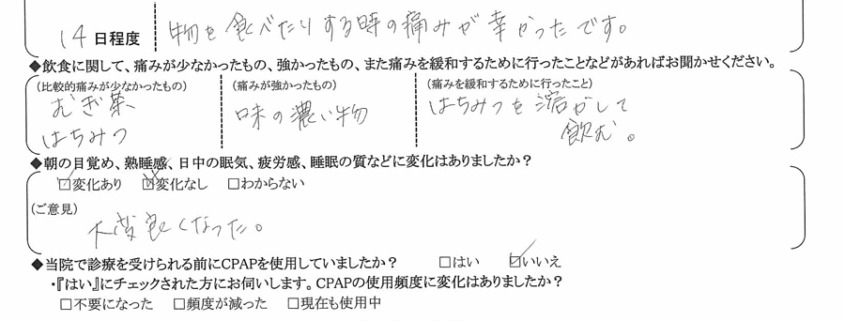 14日程度 物を食べたりする時の痛みが辛かったです。
◆飲食に関して、痛みが少なかったもの、強かったもの、また痛みを緩和するために行ったことなどがあればお聞かせください。
(比較的痛みが少なかったもの) (痛みが強かったもの) (痛みを緩和するために行ったこと)
むぎ茶 味の濃い物 はちみつを溶かして
はちみつ 飲む。
◆朝の目覚め、熟睡感、日中の眠気、疲労感、睡眠の質などに変化はありましたか?
☑変化あり ☒変化なし □わからない
(ご意見)
大変良くなった。
◆当院で診療を受けられる前にCPAPを使用していましたか? □はい ☑いいえ
・『はい』にチェックされた方にお伺いします。CPAPの使用頻度に変化はありましたか?
□不要になった □頻度が減った □現在も使用中